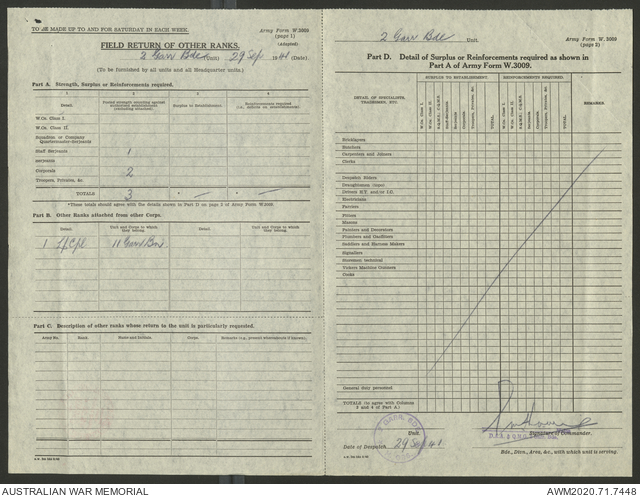 TO BE MADE UP TO AND FOR SATURDAY IN EACH WEEK.
Army Form W.3009
(page 1)
(Adapted)
FIELD RETURN OF OTHER RANKS.
2 Garr Bde (Unit) 29 Sep 1941 (Date).
(To be furnished by all units and all Headquarter units.)
Part A. Strength, Surplus or Reinforcements required.
1 2 3 4
Detail. Posted strength counting against authorized establishment (excluding attached) Surplus to Establishment. Reinforcements required to complete establishment
W.Os. Class I.
W.Os. Class II.
Squadron or Company Quartermaster-Serjeants
Staff Serjeants 1
Serjeants
Corporals 2
Troopers, Privates, &c.
TOTALS 3 * — * —
*These totals should agree with the details shown in Part D on page 2 of Army Form W.3009.
Part B. Other Ranks attached from other Corps.
Detail. Unit and Corps to which they belong. Detail. Unit and Corps to which they belong.
1 L/Cpl 11 Garr Bn
Part C. Description of other ranks whose return to the unit is particularly requested.
Army No. Rank. Name and Initials. Corps. Remarks (e.g., present whereabouts if known).
2 Garr Bde Unit.
Army Form W.3009
(page 2)
Part D. Detail of Surplus or Reinforcements required as shown in
Part A of Army Form W.3009.
DETAIL OF SPECIALISTS, TRADESMEN, ETC.
SURPLUS TO ESTABLISHMENT. REINFORCEMENTS REQUIRED. REMARKS
W.Os. Class I. W.Os. Class II. Staff-Serjeants Serjeants Corporals Troopers, Privates, &c. TOTAL
W.Os. Class I. W.Os. Class II. Serjeants Corporals Troopers, Privates, &c. TOTAL
Bricklayers
Butchers
Carpenters and Joiners
Clerks
Despatch Riders
Draughtsmen (topo)
Drivers H.T. and/or I.C.
Electricians
Farriers
Fitters
Masons
Painters and Decorators
Plumbers and Gasfitters
Saddlers and Harness Makers
Signallers
Storemen technical
Vickers Machine Gunners
Cooks
General duty personnel
TOTALS (to agree with Columns 3 and 4 of Part A.)
2 GARR. BDE
Unit.
Signature of Commander.
Date of Despatch 29 Sep 41
Bde., Divn., Area, &c., with which unit is serving.
AUSTRALIAN WAR MEMORIAL
AWM2020.71.7448